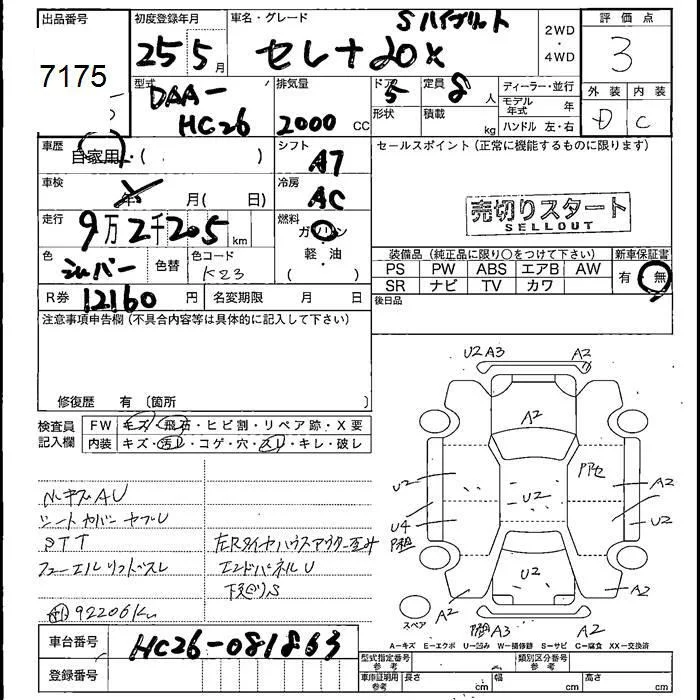 出品番号
7175
初度登録年月
25 5月
車名・グレード
Sハイブリット
セレナ 20X
2WD
・
4WD
評価点
3
外装 内装
D C
型式
DAA-
HC26
排気量
2000 CC
ドア 5
形状
定員 8 人
積載 kg
ディーラー・並行
モデル年式 年
ハンドル 左・右
車歴
自家用・( )
シフト
A7
セールスポイント(正常に機能するものに限ります)
車検
年 月( 日)
冷房
AC
売切りスタート
SELLOUT
走行
9万2千205km
燃料
ガソリン
軽・油
( )
色
シルバー
色替
色コード
K23
装備品(純正品に限り○をつけて下さい)
新車保証書
PS PW ABS エアB AW
SR ナビ TV カワ
有 無
R券 12160円
名変期限 月 日
後日品
注意事項申告欄(不具合内容等は具体的に記入して下さい)
修復歴 有〔箇所 〕
検査員
記入欄
FW キズ・飛石・ヒビ割・リペア跡・X要
内装 キズ・汚レ・コゲ・穴・スレ・キレ・破レ
U2 A3 A2
A2
U2
U2
U4
A2
U2
U2
A2
A2
A3 A2
スペア
シートカバーヤブレ
STT
左Rタイヤハウスアウター
エンドパネルU
下廻りS
92206Km
A=キズ E=エクボ U=凹み W=補修跡 S=サビ C=腐食 XX=交換済
車台番号
HC26-081863
登録番号
型式指定番号
参考
類別区分番号
参考
車庫証明用
参考
長さ cm
幅 cm
高さ cm